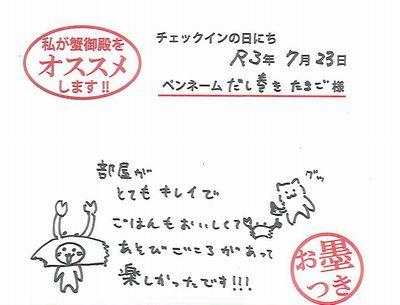 私が蟹御殿を
オススメ
します!!
チェックインの日にち
R3年 7月23日
ペンネーム だし巻き たまご 様
部屋が
とても キレイで
ごはんもおいしくて
あそびごころがあって
楽しかったです!!!
グッ
お墨
つき